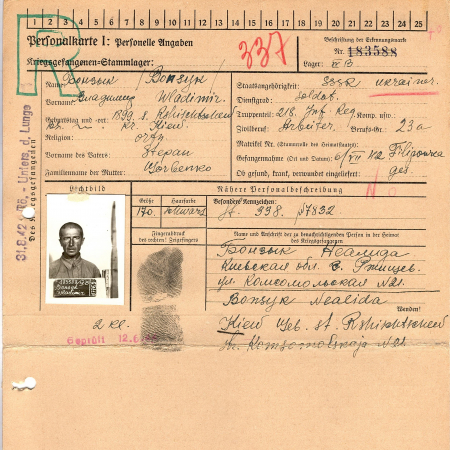 1 2 3 4 5 6 7 8 9 10 11 12 13 14 15 16 17 18 19 20 21 22 23 24 25
Personalkarte I: Personelle Angaben
Kriegsgefangenen-Stammlager:
337
Beschriftung der Erkennungsmarke
Nr. 183588
Lager:
R
Name: Бонзык / Bonsyk /
Vorname: Владимир Wladimir
Geburtstag und -ort: 1899
Kr. Kiew
Religion:
Vorname des Vaters: Stepan
Familienname der Mutter: Gorbenko
Staatsangehörigkeit: SSSR ukrainer.
Dienstgrad: Soldat
Truppenteil: 218. Inf. Reg. Komp. usw.
Zivilberuf: Arbeiter Berufs-Gr.: 23a
Matrikel Nr. (Stammrolle des Heimatstaates):
Gefangennahme (Ort und Datum):
Ob gesund, krank, verwundet eingeliefert: ges.
N
31.8.42 Rö. - Unters. d. Lunge
Des Kriegsgefangenen
Lichtbild
Nähere Personalbeschreibung
Größe Haarfarbe Besondere Kennzeichen:
170. schwarz St. 338.
Fingerabdruck
des rechten! Zeigefingers
Name und Anschrift der zu benachrichtigenden Person in der Heimat
des Kriegsgefangenen
Киевская обл. с. Ржищев.
ул. Комсомольская N21.
Bonsyk Nealida
Wenden!
Kiew Geb. st. Rshischtschew
Komsomolskaja N21
183588
Bonsyk
Wladimir
2 kl.
Geprüft 12.6